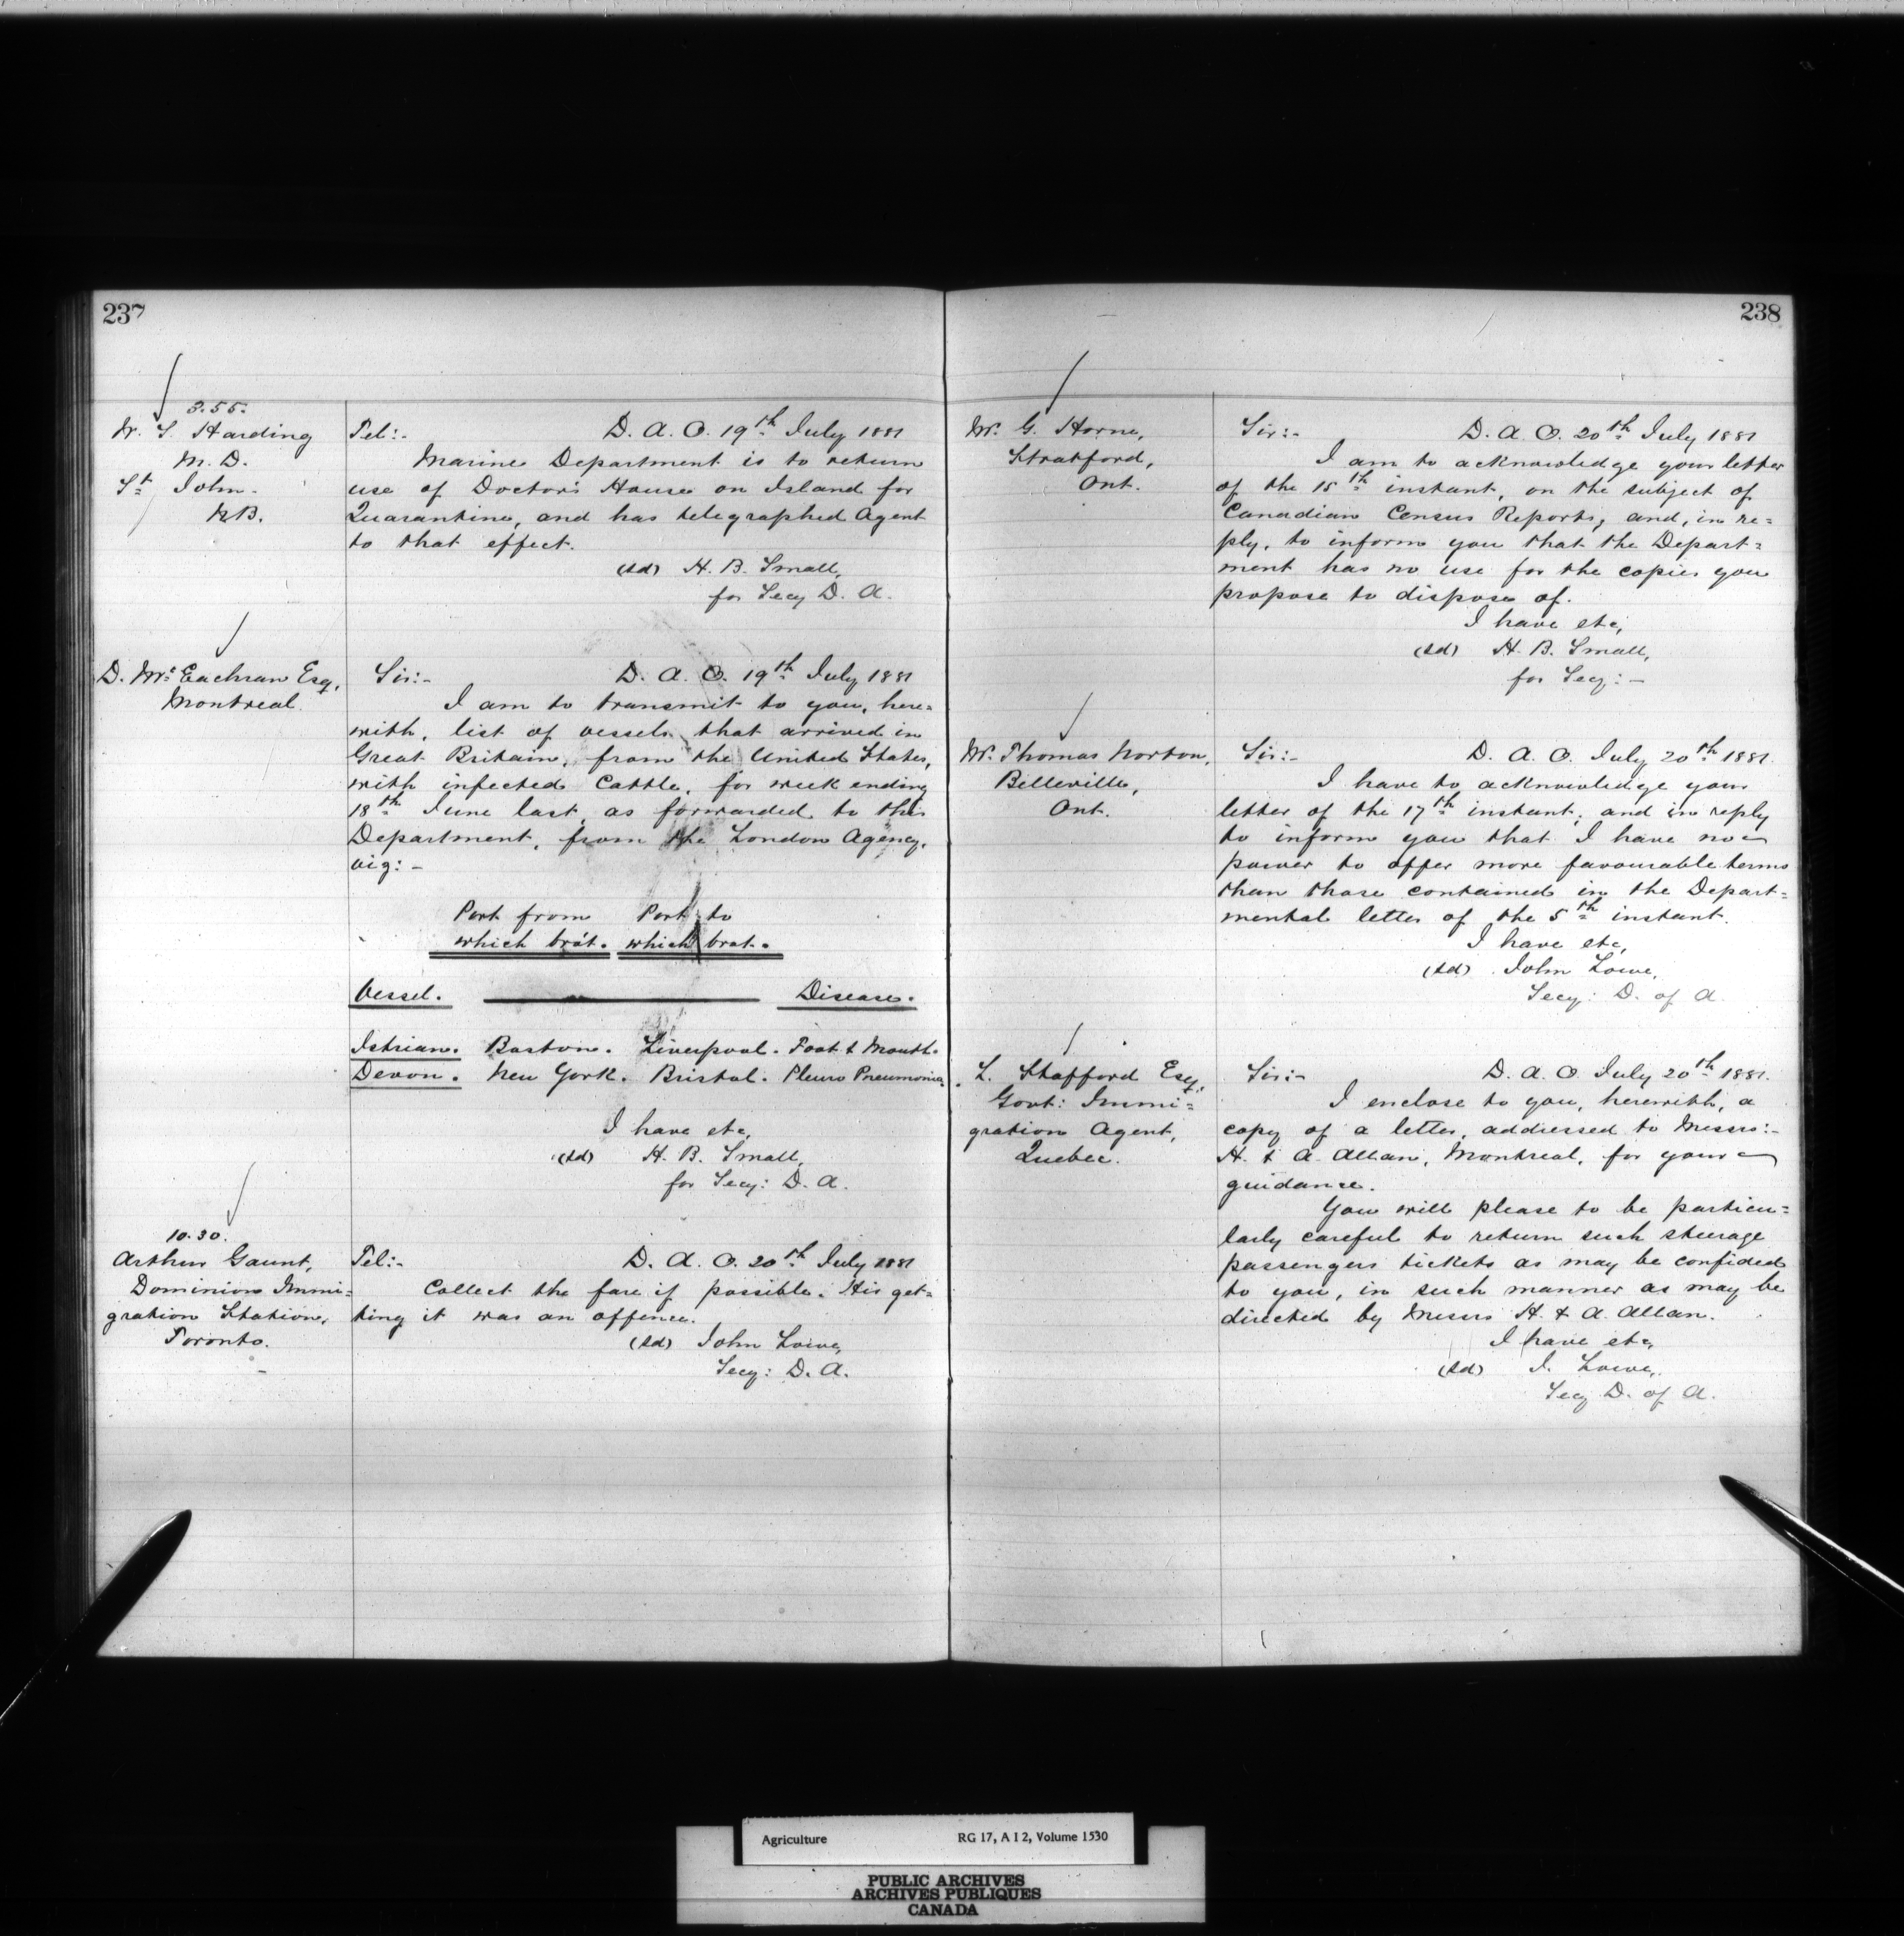 237
3.55.
W. S. Harding
M. D.
St. John.
N.B.
Tel:- D. A. O. 19th July 1881
Marine Department is to return
use of Doctor's House on Island for
Quarantine, and has telegraphed Agent
to that effect.
(sd) H. B. Small,
for Secy D. A.
D. Mc Eachran Esq,
Montreal.
Sir:- D. A. O. 19th July 1881
I am to transmit to you, here=
with, list of vessels that arrived in
Great Britain, from the United States,
with infected Cattle, for week ending
18th June last, as forwarded to this
Department, from the London Agency,
viz:-
Port from Port to
which brot. which brot.
Vessel. Disease.
Istrian. Boston. Liverpool. Foot & Mouth.
Devon. New York. Bristol. Pleuro Pneumonia.
I have etc,
(sd) H. B. Small,
for Secy: D. A.
10.30.
Arthur Gaunt,
Dominion Immi=
gration Station,
Toronto.
Tel:- D. A. O. 20th July 1881
Collect the fare if possible. His get=
ting it was an offence.
(sd) John Lowe,
Secy: D. A.
238
Mr. G. Horne,
Stratford,
Ont.
Sir:- D. A. O. 20th July 1881
I am to acknowledge your letter
of the 15th instant, on the subject of
Canadian Census Reports; and, in re=
ply, to inform you that the Depart=
ment has no use for the copies you
propose to dispose of.
I have etc,
(sd) H. B. Small,
for Secy:-
Mr. Thomas Norton,
Belleville,
Ont.
Sir:- D. A. O. July 20th 1881.
I have to acknowledge your
letter of the 17th instant, and in reply
to inform you that I have no
power to offer more favourable terms
than those contained in the Depart=
mental letter of the 5th instant.
I have etc,
(sd) John Lowe,
Secy: D. of A.
L. Stafford Esq,
Govt: Immi=
gration Agent,
Quebec.
Sir:- D. A. O. July 20th 1881.
I enclose to you, herewith, a
copy of a letter, addressed to Messrs:-
H. & A. Allan, Montreal, for your
guidance.
You will please to be particu=
larly careful to return such steerage
passengers tickets as may be confided
to you, in such manner as may be
directed by Messrs H. & A. Allan.
I have etc,
(sd) J. Lowe,
Secy D. of A.
Agriculture RG 17, A I 2, Volume 1530
PUBLIC ARCHIVES
ARCHIVES PUBLIQUES
CANADA